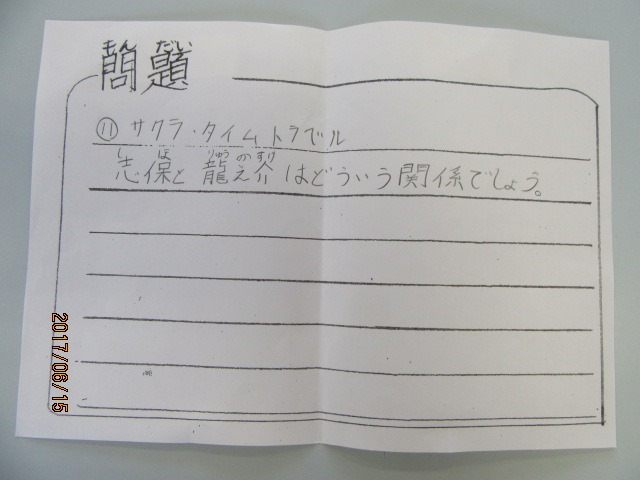 もんだい
問題
⑪サクラ・タイムトラベル
しほ りゅうのすけ
志保と龍之介はどういう関係でしょう。
2017/06/15